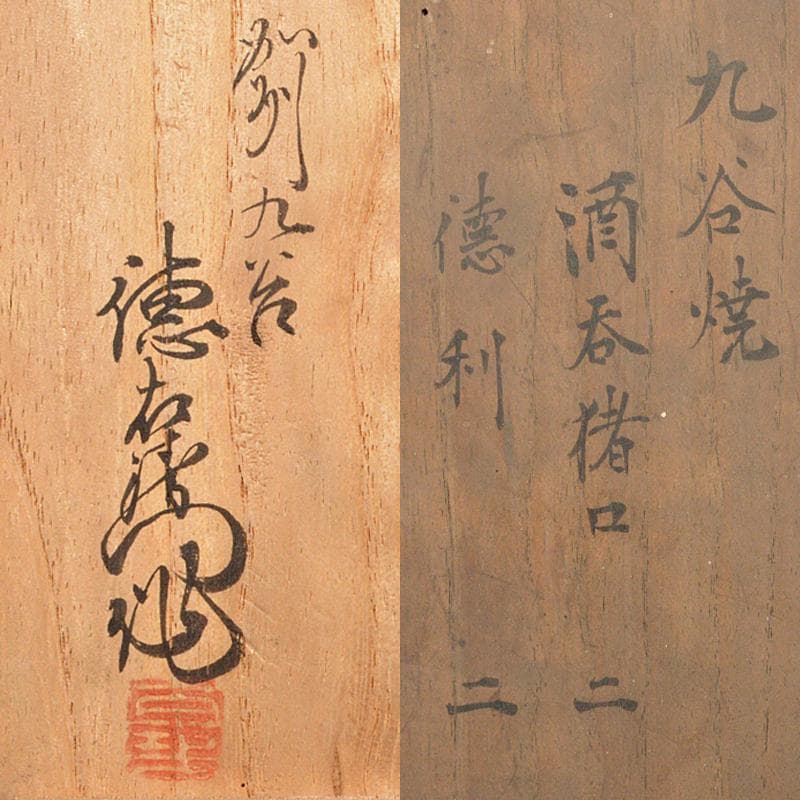 九谷焼
酒呑猪口 二
徳利 二
加州九谷
徳右衛門作